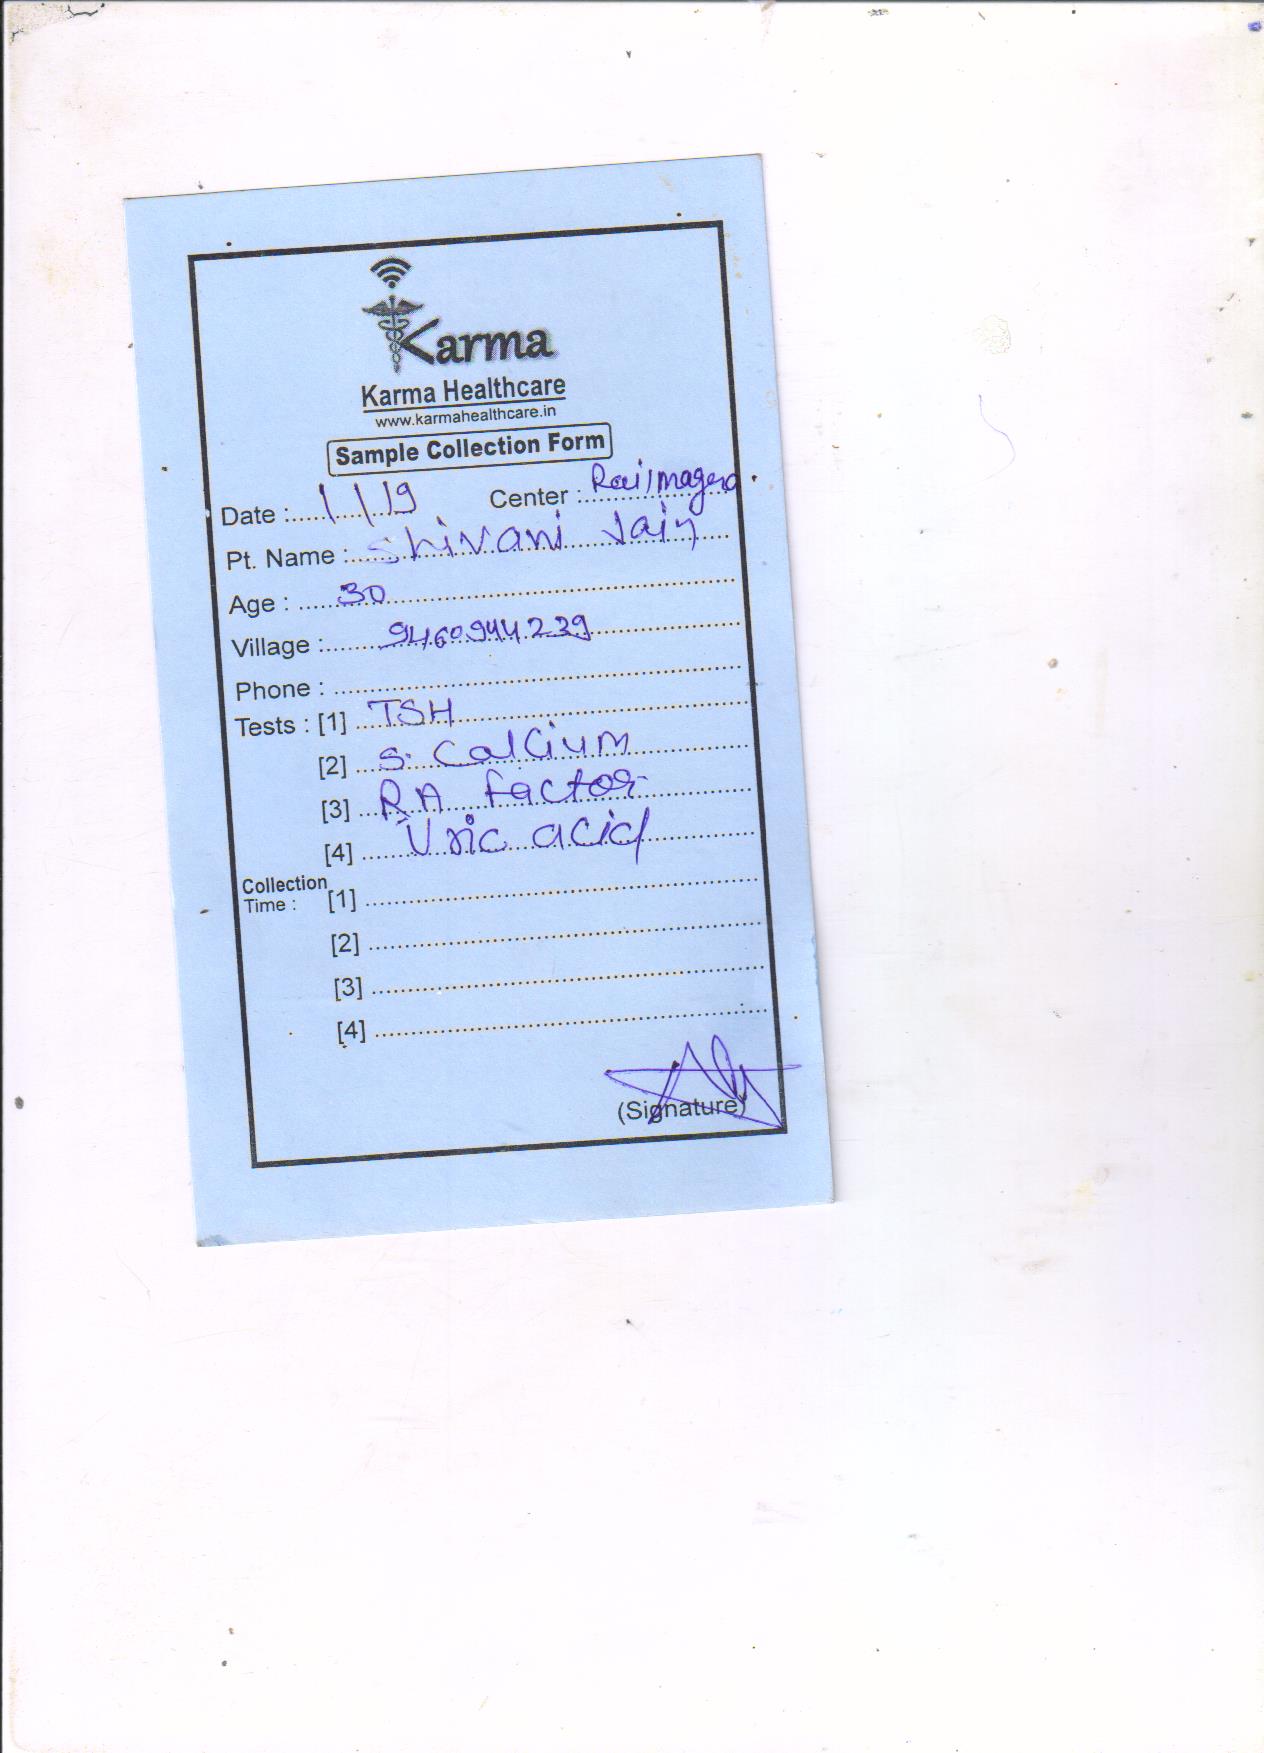 Karma
Karma Healthcare
www.karmahealthcare.in
Sample Collection Form
Date : 1/1/19 Center :
Pt. Name : Shivani Jain
Age : 30
Village : 9460944239
Phone :
Tests : [1] TSH
[2] S. Calcium
[3] RA factor
[4] Uric acid
Collection Time : [1]
[2]
[3]
[4]
(Signature)